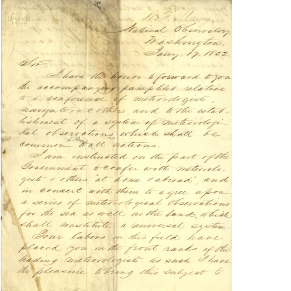 National Observatory
Washington,
Jany 19, 1852
Sir
I have the honor to forward to you
the accompanying pamphlet relative
to a conference of meteorologists
navigators & others and to the estab-
lishment of a system of meteorologi-
cal observations which shall be
common to all nations.
I am instructed on the part of the
Government to confer with meteorolo-
gists & others at home & abroad and
in concert with them to agree upon
a series of meteorological observations
for the sea as well as the land, which
shall constitute a universal system.
Your labors in this field have
placed you in the front ranks of the
leading meteorologists as such I have
the pleasure to bring this subject to